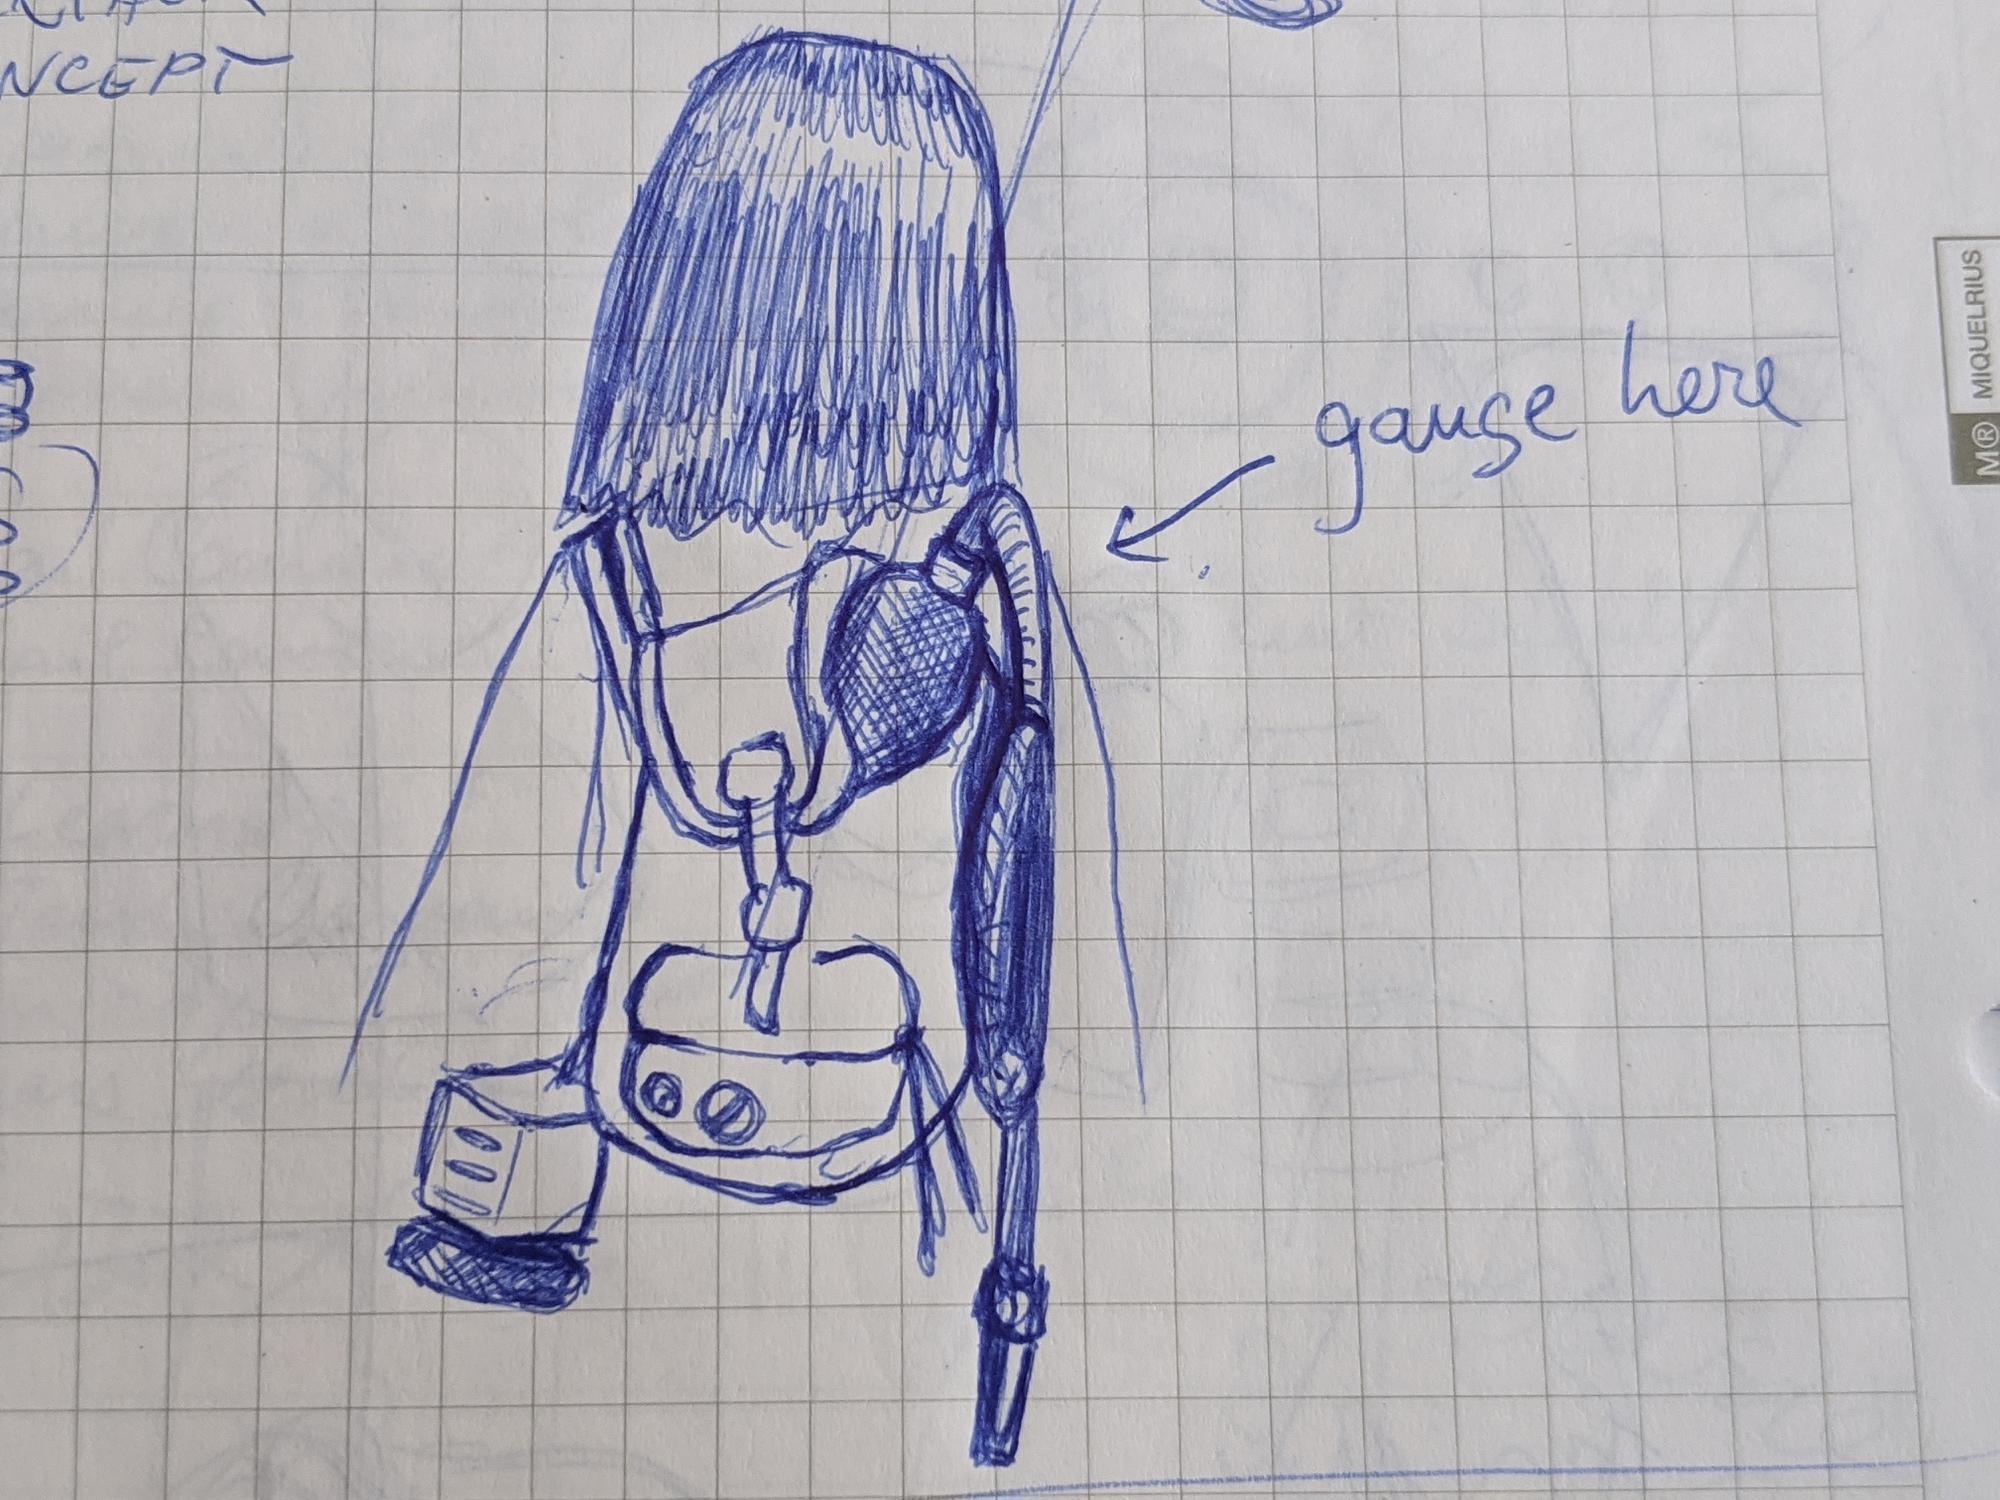 NCEPT
gauge here
M® MIQUELRIUS